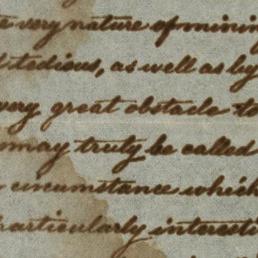 very nature of mining
tedious, as well as by
very great obstacle to
may truly be called
circumstance which
particularly interesti